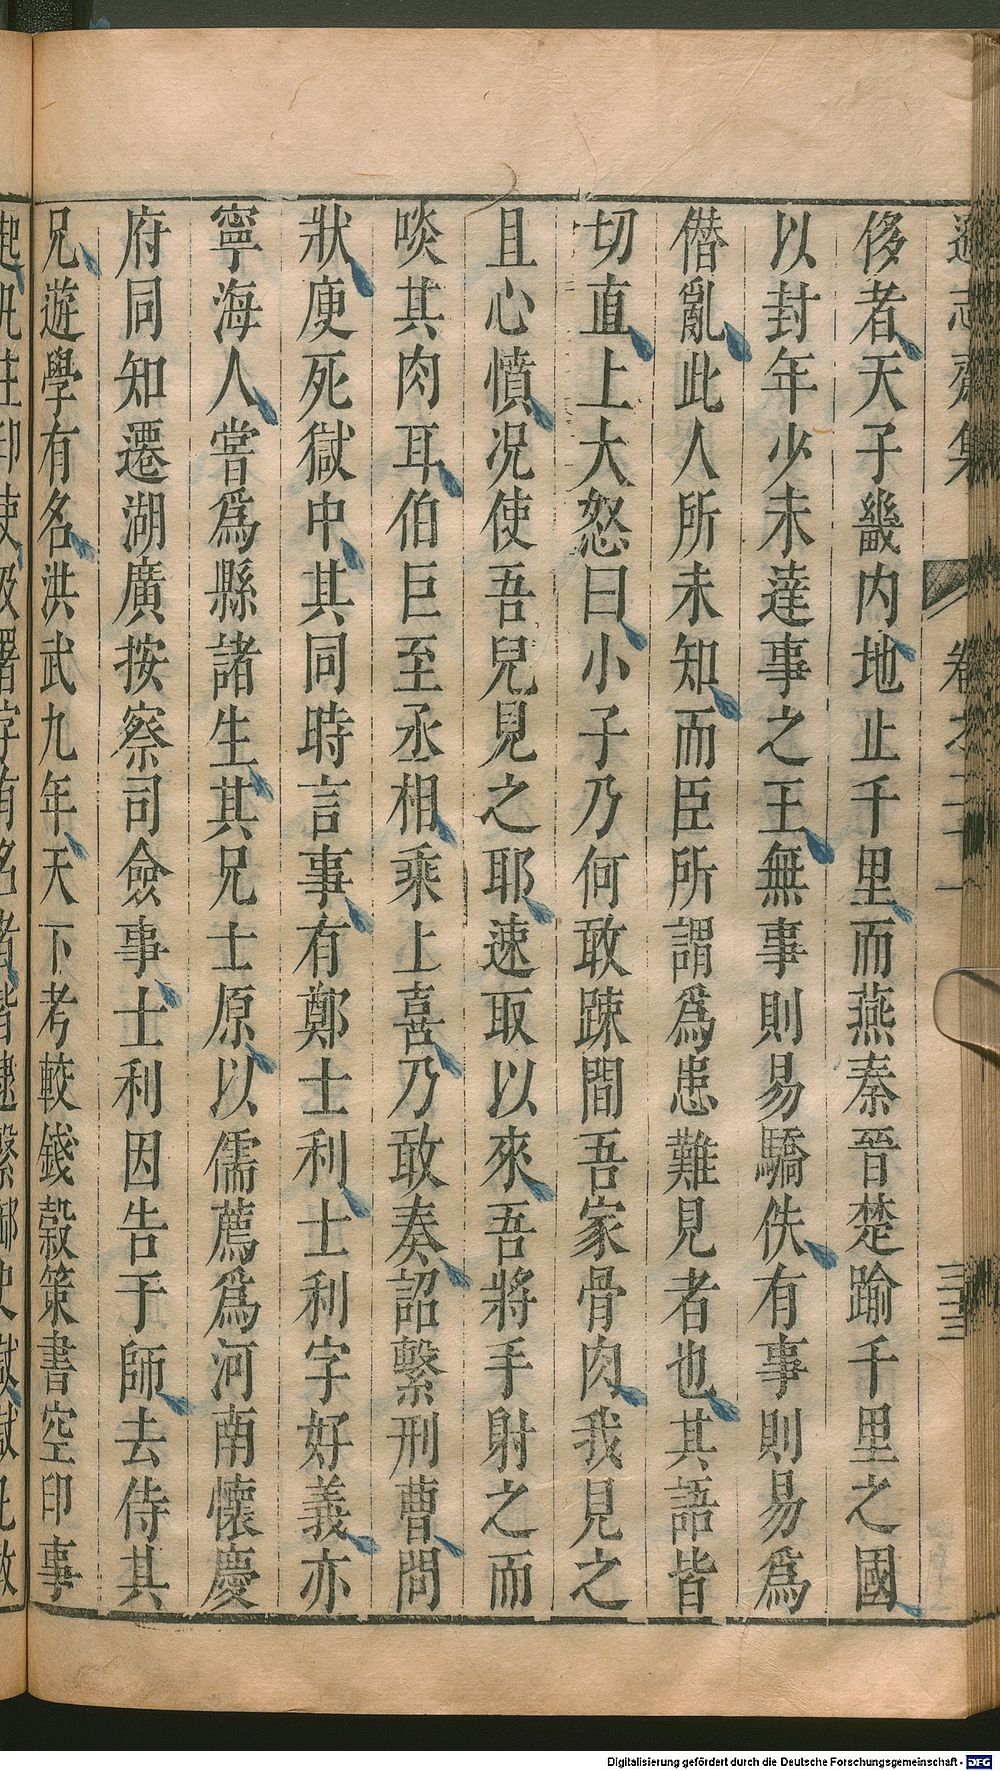 遜志齋集 卷之二十一 三三
侈者天子畿内地止千里而燕秦晉楚踰千里之國
以封年少未達事之王無事則易驕佚有事則易爲
僣亂此人所未知而臣所謂爲患難見者也其語皆
切直上大怒曰小子乃何敢疎間吾家骨肉我見之
且心憤况使吾兒見之耶速取以來吾將手射之而
啖其肉耳伯巨至丞相乘上喜乃敢奏詔繫刑曹問
狀庾死獄中其同時言事有鄭士利士利字好義亦
寧海人嘗爲縣諸生其兄士原以儒薦爲河南懷慶
府同知遷湖廣按察司僉事士利因告于師去侍其
兄遊學有名洪武九年天下考較錢穀策書空印事
起凡主印吏及署字有名者皆逮繫御史獄獄凡數
Digitalisierung gefördert durch die Deutsche Forschungsgemeinschaft - DFG